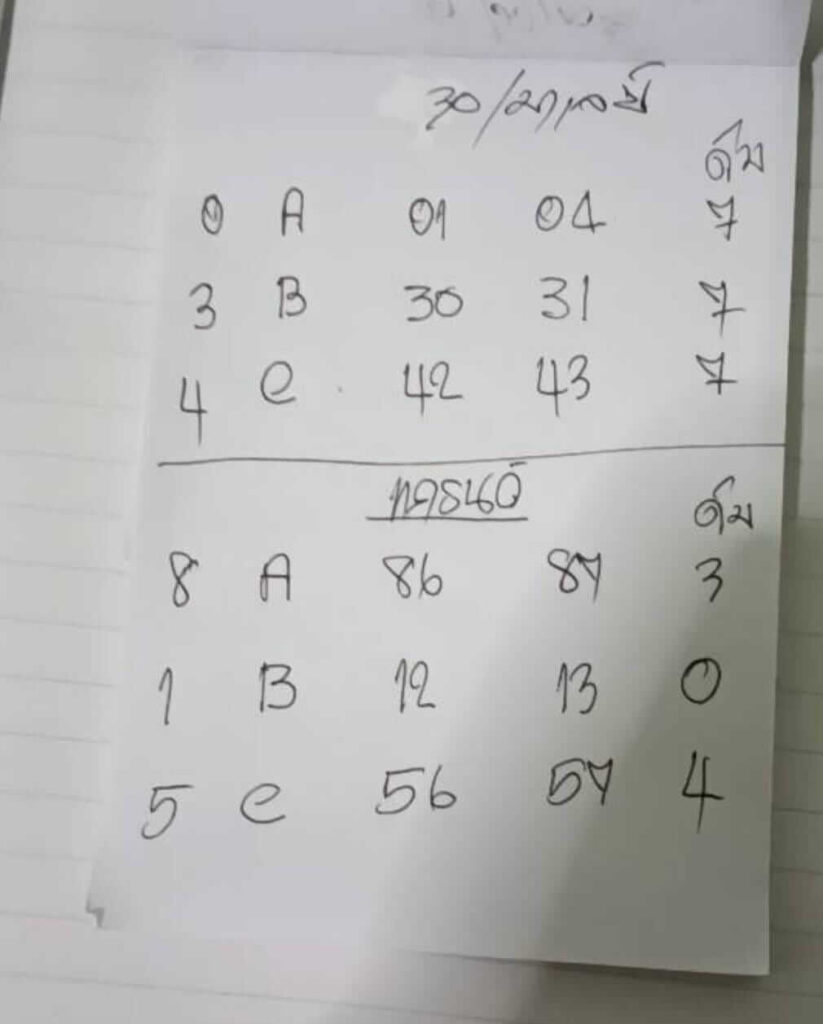 30/มาเลย์
ดับ
0 A 01 04 7
3 B 30 31 7
4 C 42 43 7
ดับ
8 A 86 87 3
1 B 12 13 0
5 C 56 57 4